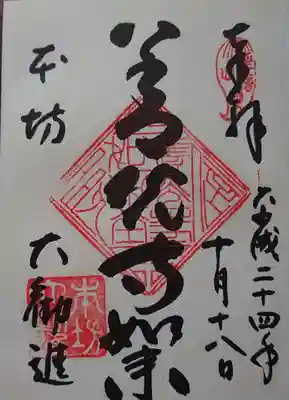 奉拝
平成二十四年
十月十八日
善光寺如来
本坊
大勧進